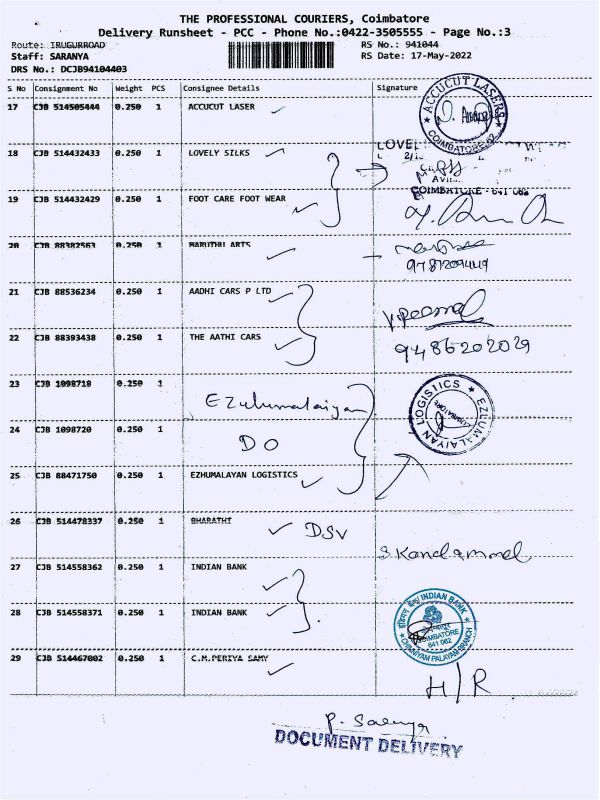 THE PROFESSIONAL COURIERS, Coimbatore
Delivery Runsheet - PCC - Phone No.:0422-3505555 - Page No.:3
Route: IRUGURROAD RS No.: 941044
Staff: SARANYA RS Date: 17-May-2022
DRS No.: DCJB94104403
S No Consignment No Weight PCS Consignee Details Signature
17 CJB 514505444 0.250 1 ACCUCUT LASER
ACCUCUT LASERS
COIMBATORE-62
18 CJB 514432433 0.250 1 LOVELY SILKS
LOVEL
COIMBATORE - 641 062
19 CJB 514432429 0.250 1 FOOT CARE FOOT WEAR
20 CJB 88382563 0.250 1 MARUTHI ARTS
21 CJB 88536234 0.250 1 AADHI CARS P LTD
22 CJB 88393438 0.250 1 THE AATHI CARS
9486202029
23 CJB 1098718 0.250 1
Ezhumalaiyan
EZLUMALAIYAN LOGISTICS
COIMBATORE
24 CJB 1098720 0.250 1 DO
25 CJB 88471750 0.250 1 EZHUMALAYAN LOGISTICS
26 CJB 514478337 0.250 1 BHARATHI DSV
S. Kandammal
27 CJB 514558362 0.250 1 INDIAN BANK
28 CJB 514558371 0.250 1 INDIAN BANK
INDIAN BANK
COIMBATORE
641 062
CHINNIYAM PALAYAM BRANCH
29 CJB 514467002 0.250 1 C.M.PERIYA SAMY
H/R
P. Saranya
DOCUMENT DELIVERY